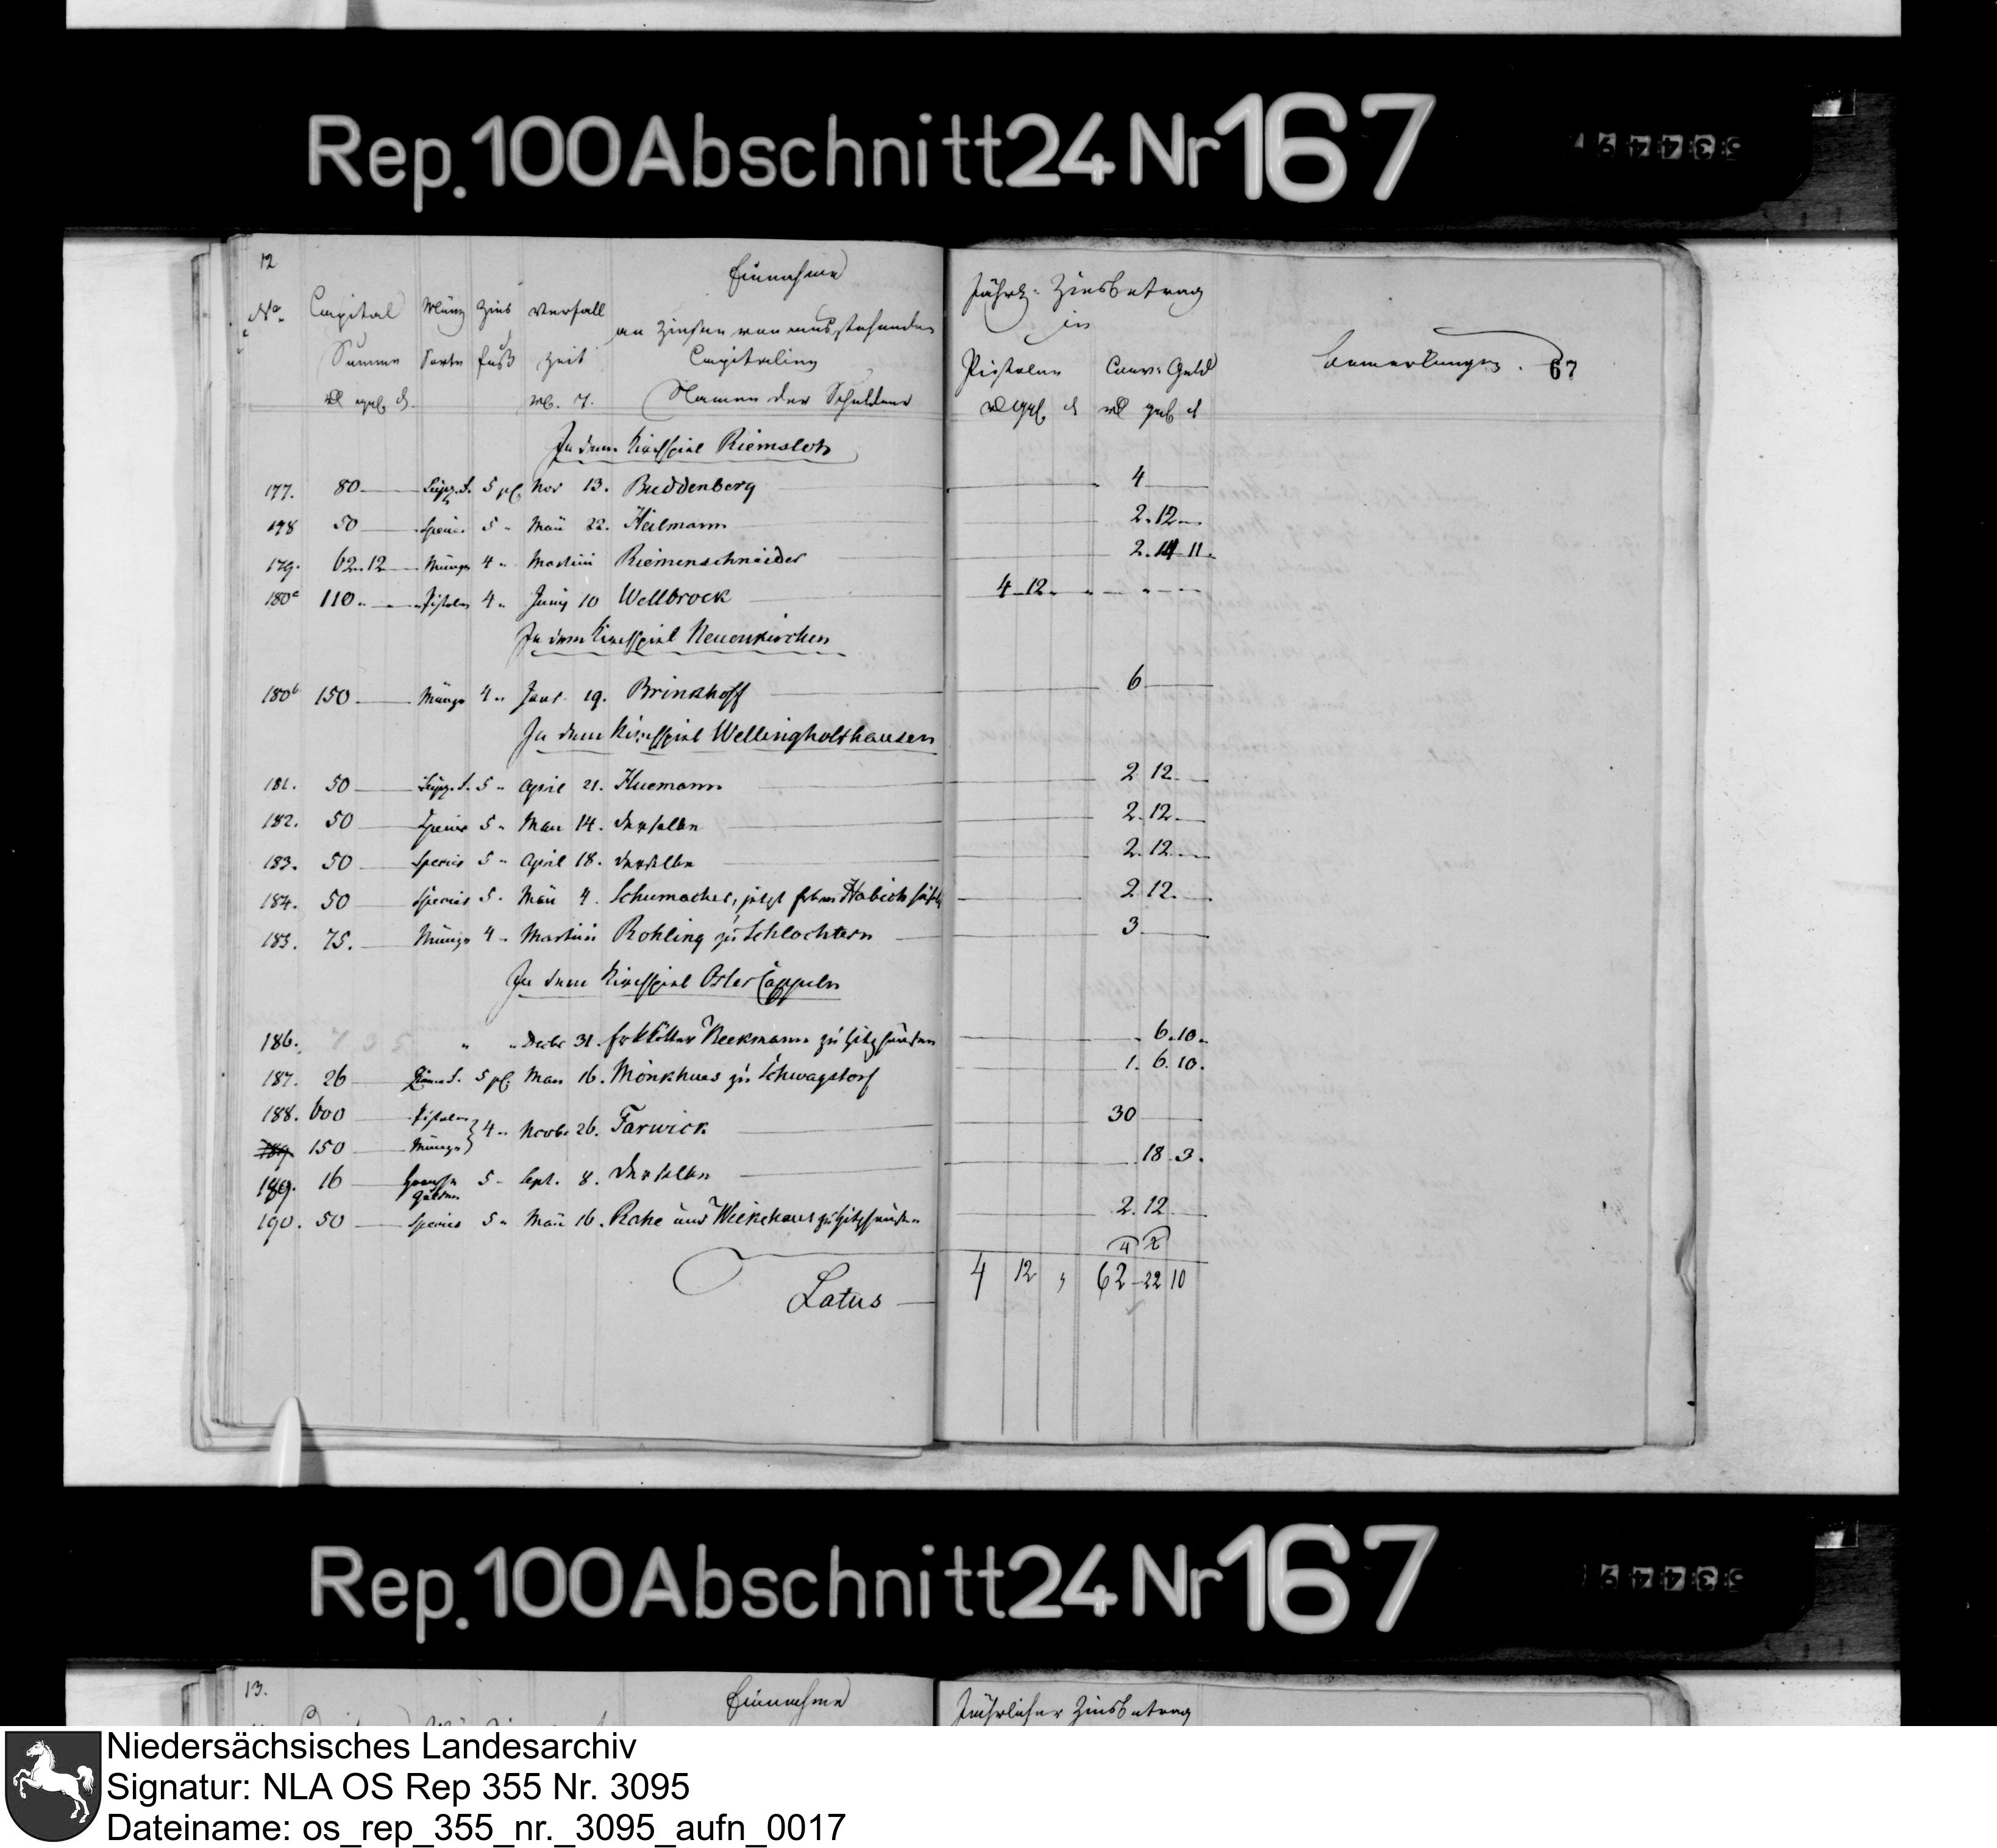 Rep. 100 Abschnitt 24 Nr 167
12
Einnahme
No. Capital Münz Zins Verfall an Zinsen von ausstehenden
Summe Sorte fuß Zeit Capitalien
Namen der Schuldner
Jährl: Zinsbetrag
in
Pistolen Conv: Geld
Bemerkungen. 67
In dem Kirchspiel Riemsloh
177. 80 5 pC Nov 13. Buddenberg 4
178 50 Species 5 " Mai 22. Heilmann 2. 12
179. 62. 12 Münze 4 " Martini Riemenschneider 2. 11.
180a 110 Pistolen 4 " Juny 10 Wellbrock 4 12
In dem Kirchspiel Neuenkirchen
180b 150 Münze 4 " Janr. 19. Brinkhoff 6
In dem Kirchspiel Wellingholthausen
181. 50 5 " April 21. Huemann 2 12
182. 50 Species 5 " Mai 14. derselbe 2. 12
183. 50 Species 5 " April 18. derselbe 2. 12
184. 50 Species 5 " Mai 4. Schumacher, jetzt Habich 2 12
183. 75. Münze 4 " Martini Rohling zu Schlochtern 3
In dem Kirchspiel OsterCappeln
186. " " Decbr 31. Beekmann zu Hitzhausen 6. 10
187. 26 5 pC. Mai 16. Mönkhues zu Schwagstorf 1. 6. 10.
188. 600 Pistolen
150 Münze 4 " Novbr 26. Farwick 30
189. 16 5 " Sept. 8. derselbe 18. 3.
190. 50 Species 5 " Mai 16. Rahe und Wiekehaus zu Hitzhausen 2. 12
4 2
Latus 4 12 , 62 22 10
Rep. 100 Abschnitt 24 Nr 167
13.
Einnahme
Jährlicher Zinsbetrag
Niedersächsisches Landesarchiv
Signatur: NLA OS Rep 355 Nr. 3095
Dateiname: os_rep_355_nr._3095_aufn_0017